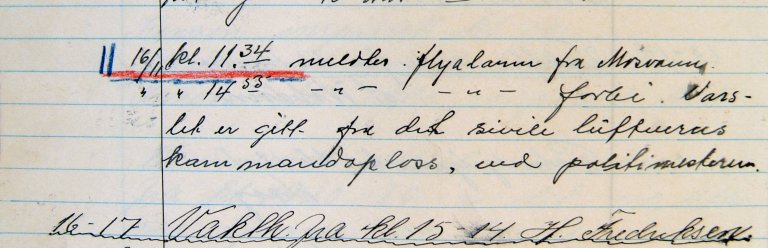 16/11 kl. 11.34 meldtes flyalarm fra Mosvann.
" " 14 53 -"- -"- forbi. Vars-
let er gitt fra det sivile luftverns
kommandoplass, ved politimesteren.
16-17 Vakth. fra kl. 15-14 H. Fredriksen.